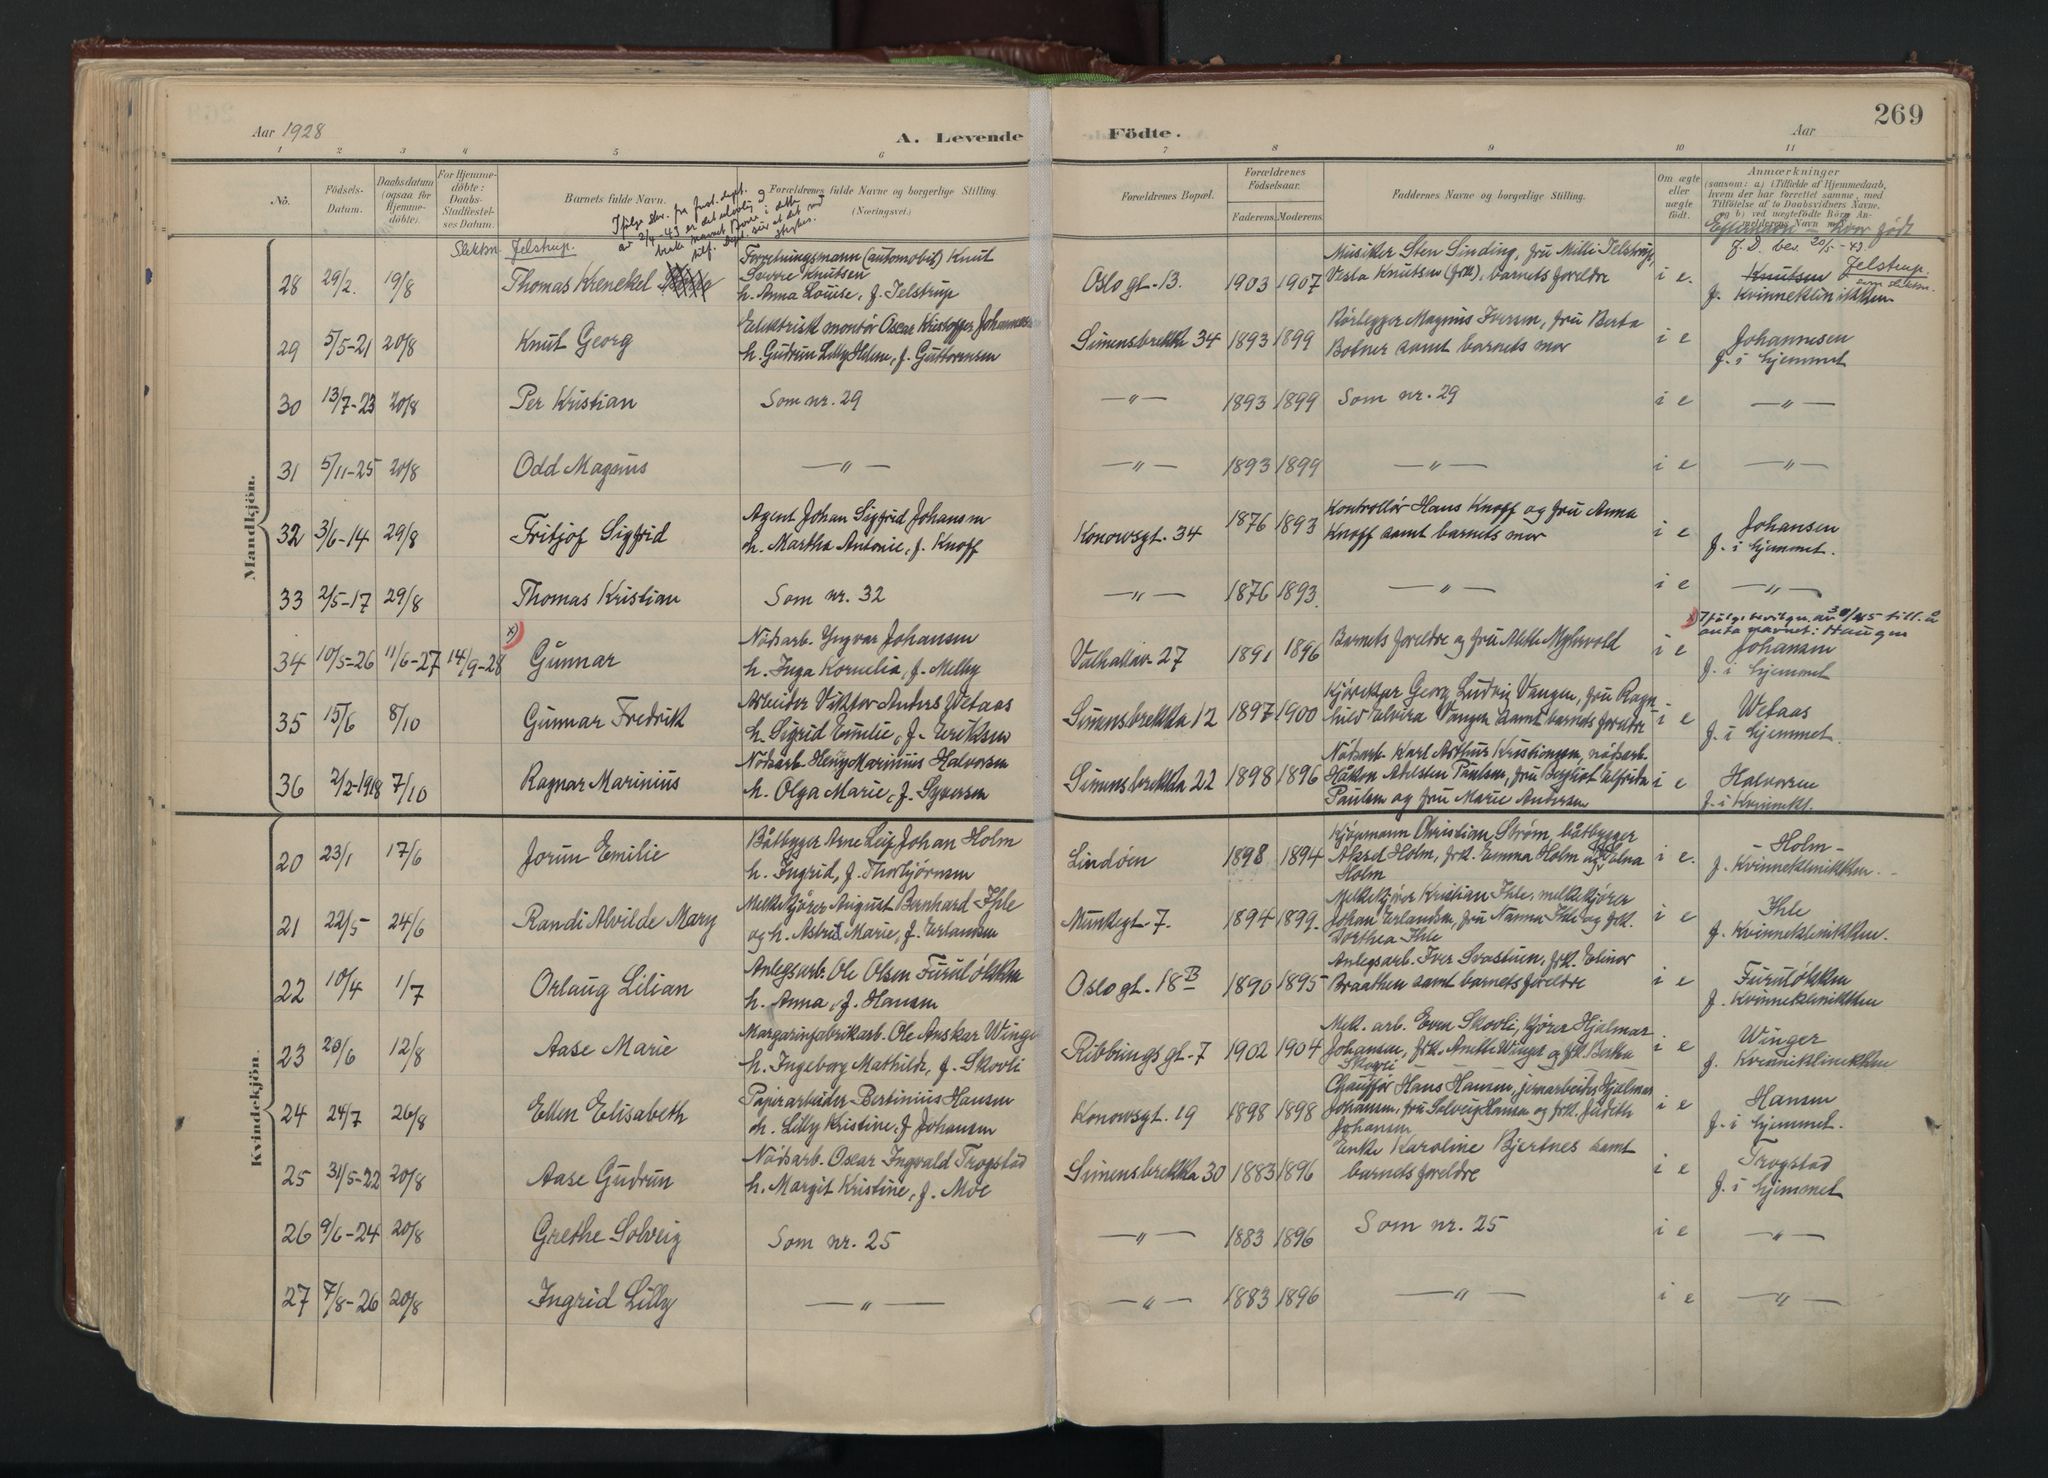 269
Aar 1928
A. Levende Födte.
Aar
1 2 3 4 5 6 7 8 9 10 11
No.
Födsels-Datum.
Daabsdatum (ogsaa för Hjemmedöbte).
For Hjemmedöbte: Daabs-Stadfæstelses Datum.
Barnets fulde Navn.
Forældrenes fulde Navne og borgerlige Stilling. (Næringsvei.)
Forældrenes Bopæl.
Forældrenes Födselsaar.
Faderens. Moderens.
Faddernes Navne og borgerlige Stilling.
Om ægte eller uægte födt.
Anmærkninger
(saasom: a) i Tilfælde af Hjemmedaab, hvem der har forrettet samme, med Tilföielse af to Daabsvidners Navne, og b) ved uægtefödte Börn
Efternavn – hvor født
J. D. bev. 20/5-43.
Slektsn. Jelstrup.
Mandkjön.
28 29/2. 19/8 Thomas Krenckel
Forretningsmann (automobil) Knut
Sverre Knutsen
h. Anna Louise, f. Jelstrup
Oslo gt. 13. 1903 1907
Musiker Sten Sinding, fru Milli Jelstrup,
Vesla Knutsen (frk), barnets foreldre
i e. Knutsen Jelstrup.
som slektsn.
f. Kvinneklinikken
29 5/5-21 20/8 Knut Georg
Elektrisk montør Oscar Kristoffer Johannesen
h. Gudrun Lilly Helene, f. Guttormsen
Simensbrekka 34 1893 1899
Rørlegger Magnus Iversen, fru Berta
Botner samt barnets mor
i e Johannesen
f. i hjemmet
30 13/7-23 20/8 Per Kristian Som nr. 29 — " — 1893 1899 Som nr. 29 i e — " —
31 5/11-25 20/8 Odd Magnus — " — — " — 1893 1899 — " — i e — " —
32 3/6-14 29/8 Fritjof Sigfrid
Agent Johan Sigfrid Johansen
h. Martha Antonie, f. Knoff
Konowsgt. 34 1876 1893
Kontrollør Hans Knoff og fru Anna
Knoff samt barnets mor
i e Johansen
f. i hjemmet.
33 2/5-17 29/8 Thomas Kristian Som nr. 32 — " — 1876 1893. — " — i e — " —
34 10/5-26 11/6-27 14/9-28 x) Gunnar
Nødsarb. Yngvar Johansen
h. Inga Kornelia, f. Melby
Valhallav. 27 1891 1896
Barnets foreldre og fru Alette Myhrvold
i e
anta navnet: Haugen
Johansen
f. i hjemmet
35 15/6 8/10 Gunnar Fredrik
Arbeider Viktor Anders Wetaas
h. Sigrid Emilie, f. Eriksen
Simensbrekka 12 1897 1900
Kjørekar Georg Ludvig Vangen, fru Ragn
hild Elvira Vangen samt barnets foreldre
i e Wetaas
f. i hjemmet.
36 2/2-1918 7/10 Ragnar Marinius
Nødsarb. Henry Marinius Halvorsen
h. Olga Marie, f. Syversen
Simensbrekka 22 1898 1896
Nødsarb. Karl Arthur Kristiansen, nødsarb.
Håkon Adlsten Paulsen, fru Bergliot Elfrida
Paulsen og fru Marie Andersen
i e Halvorsen
f. i Kvinnekl.
Kvindekjön.
20 23/1 17/6 Jorun Emilie
Båtbygger Arne Leif Johan Holm
h. Ingrid, f. Thorbjørnsen
Lindøen 1898 1894
Kjøpmann Christian Strøm, båtbygger
Aksel Holm, frk. Emma Holm og Selna
Holm
i e. – Holm –
f. Kvinneklinikken.
21 22/5 24/6 Randi Alvilde Mary
Melkekjører August Bernhard Ihle
og h. Astrid Marie, f. Erlandsen
Munkegt. 7. 1894 1899.
Melkekjører Kristian Ihle, melkekjører
Johan Erlandsen, fru Nanna Ihle og frk.
Dorthea Ihle
i e Ihle
f. Kvinneklinikken.
22 10/4 1/7 Orlaug Lilian
Anlegsarb. Ole Olsen Furuløkken
h. Anna, f. Hansen
Oslo gt. 18 B 1890 1895
Anlegsarb. Iver Svastuen, frk. Elinor
Braathen samt barnets foreldre
i e Furuløkken
f. Kvinneklinikken
23 20/6 12/8 Aase Marie
Margarinfabrikarb. Ole Anskar Winger
h. Ingeborg Mathilde, f. Skovli
Ribbungsgt. 7 1902 1904
Mek. arb. Even Skovli, kjører Hjalmar
Johansen, frk. Anette Winger og frk. Berta
Skovli
i e Winger
f. Kvinneklinikken
24 24/7 26/8 Ellen Elisabeth
Papirarbeider Bertinius Hansen
h. Lilly Kristine, f. Johansen
Konowsgt. 19 1898 1898
Chauffør Hans Hansen, jernarbeider Hjalmar
Johansen, fru Solveig Hansen og frk. Judith
Johansen
i e Hansen
f. i hjemmet.
25 31/5-22 20/8 Aase Gudrun
Nødsarb. Oscar Ingvald Trogstad
h. Margit Kristine, f. Moe
Simensbrekka 30 1883 1896
Enke Karoline Bjertnes samt
barnets foreldre
i e Trogstad
f. i hjemmet
26 9/6-24 20/8 Grethe Solveig Som nr. 25 — " — 1883 1896 Som nr. 25 i e — " —
27 7/8-26 20/8 Ingrid Lilly — " — — " — 1883 1896 — " — i e — " —